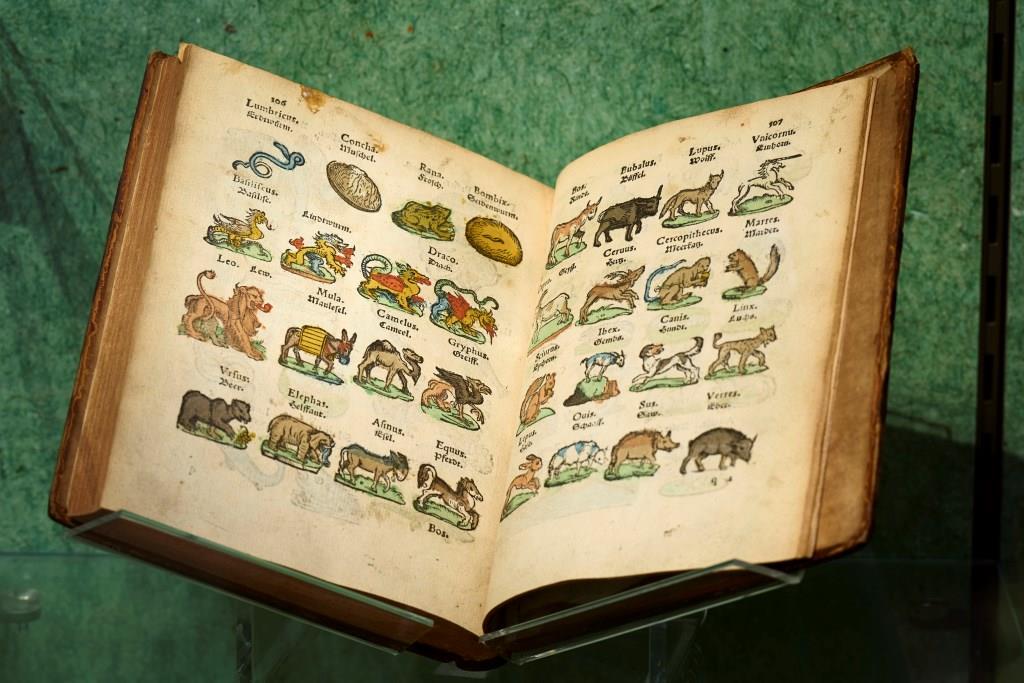 106
Lumbricus.
Concha.
Muschel.
Rana.
Frosch.
Bombix.
Seidenwurm.
Basiliscus.
Basilisc.
Lindtwurm.
Draco.
Leo. Lew.
Mula.
Maulesel.
Camelus.
Cameel.
Gryphus.
Greiff.
Vrsus.
Beer.
Elephas.
Helffant.
Asinus.
Esel.
Equus.
Pferdt.
Bos.
107
Bos.
Bubalus.
Büffel.
Lupus.
Wolff.
Vnicornu.
Einhorn.
Ceruus.
Cercopithecus.
Meerkatz.
Martes.
Marder.
Ibex.
Gembs.
Canis.
Hundt.
Linx.
Luchs.
Lepus.
Ouis.
Schaaff.
Sus.
Saw.
Verres.
Eber.